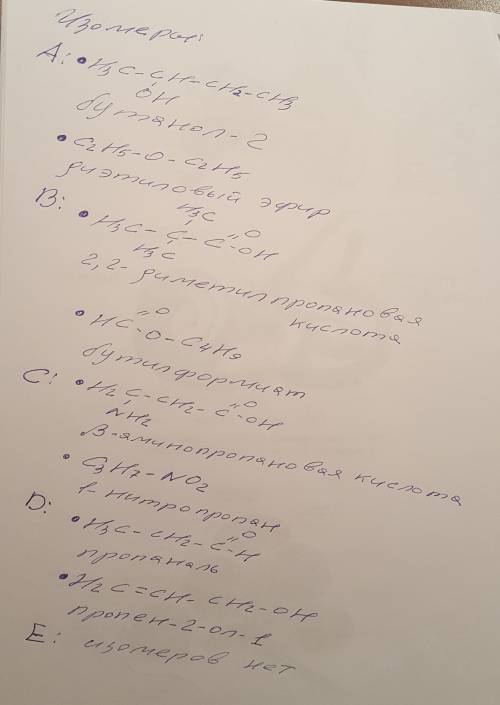 Изомеры:
A: • H3C-CH-CH2-CH3
OH
бутанол-2
• C2H5-O-C2H5
диэтиловый эфир
B: • H3C-C-C=O-OH
H3C
H3C
2,2-диметилпропановая
кислота
• HC=O-O-C4H9
бутилформиат
C: • H2C-CH2-C=O-OH
NH2
β-аминопропановая кислота
• C3H7-NO2
1-нитропропан
D: • H3C-CH2-C=O-H
пропаналь
• H2C=CH-CH2-OH
пропен-2-ол-1
E: изомеров нет